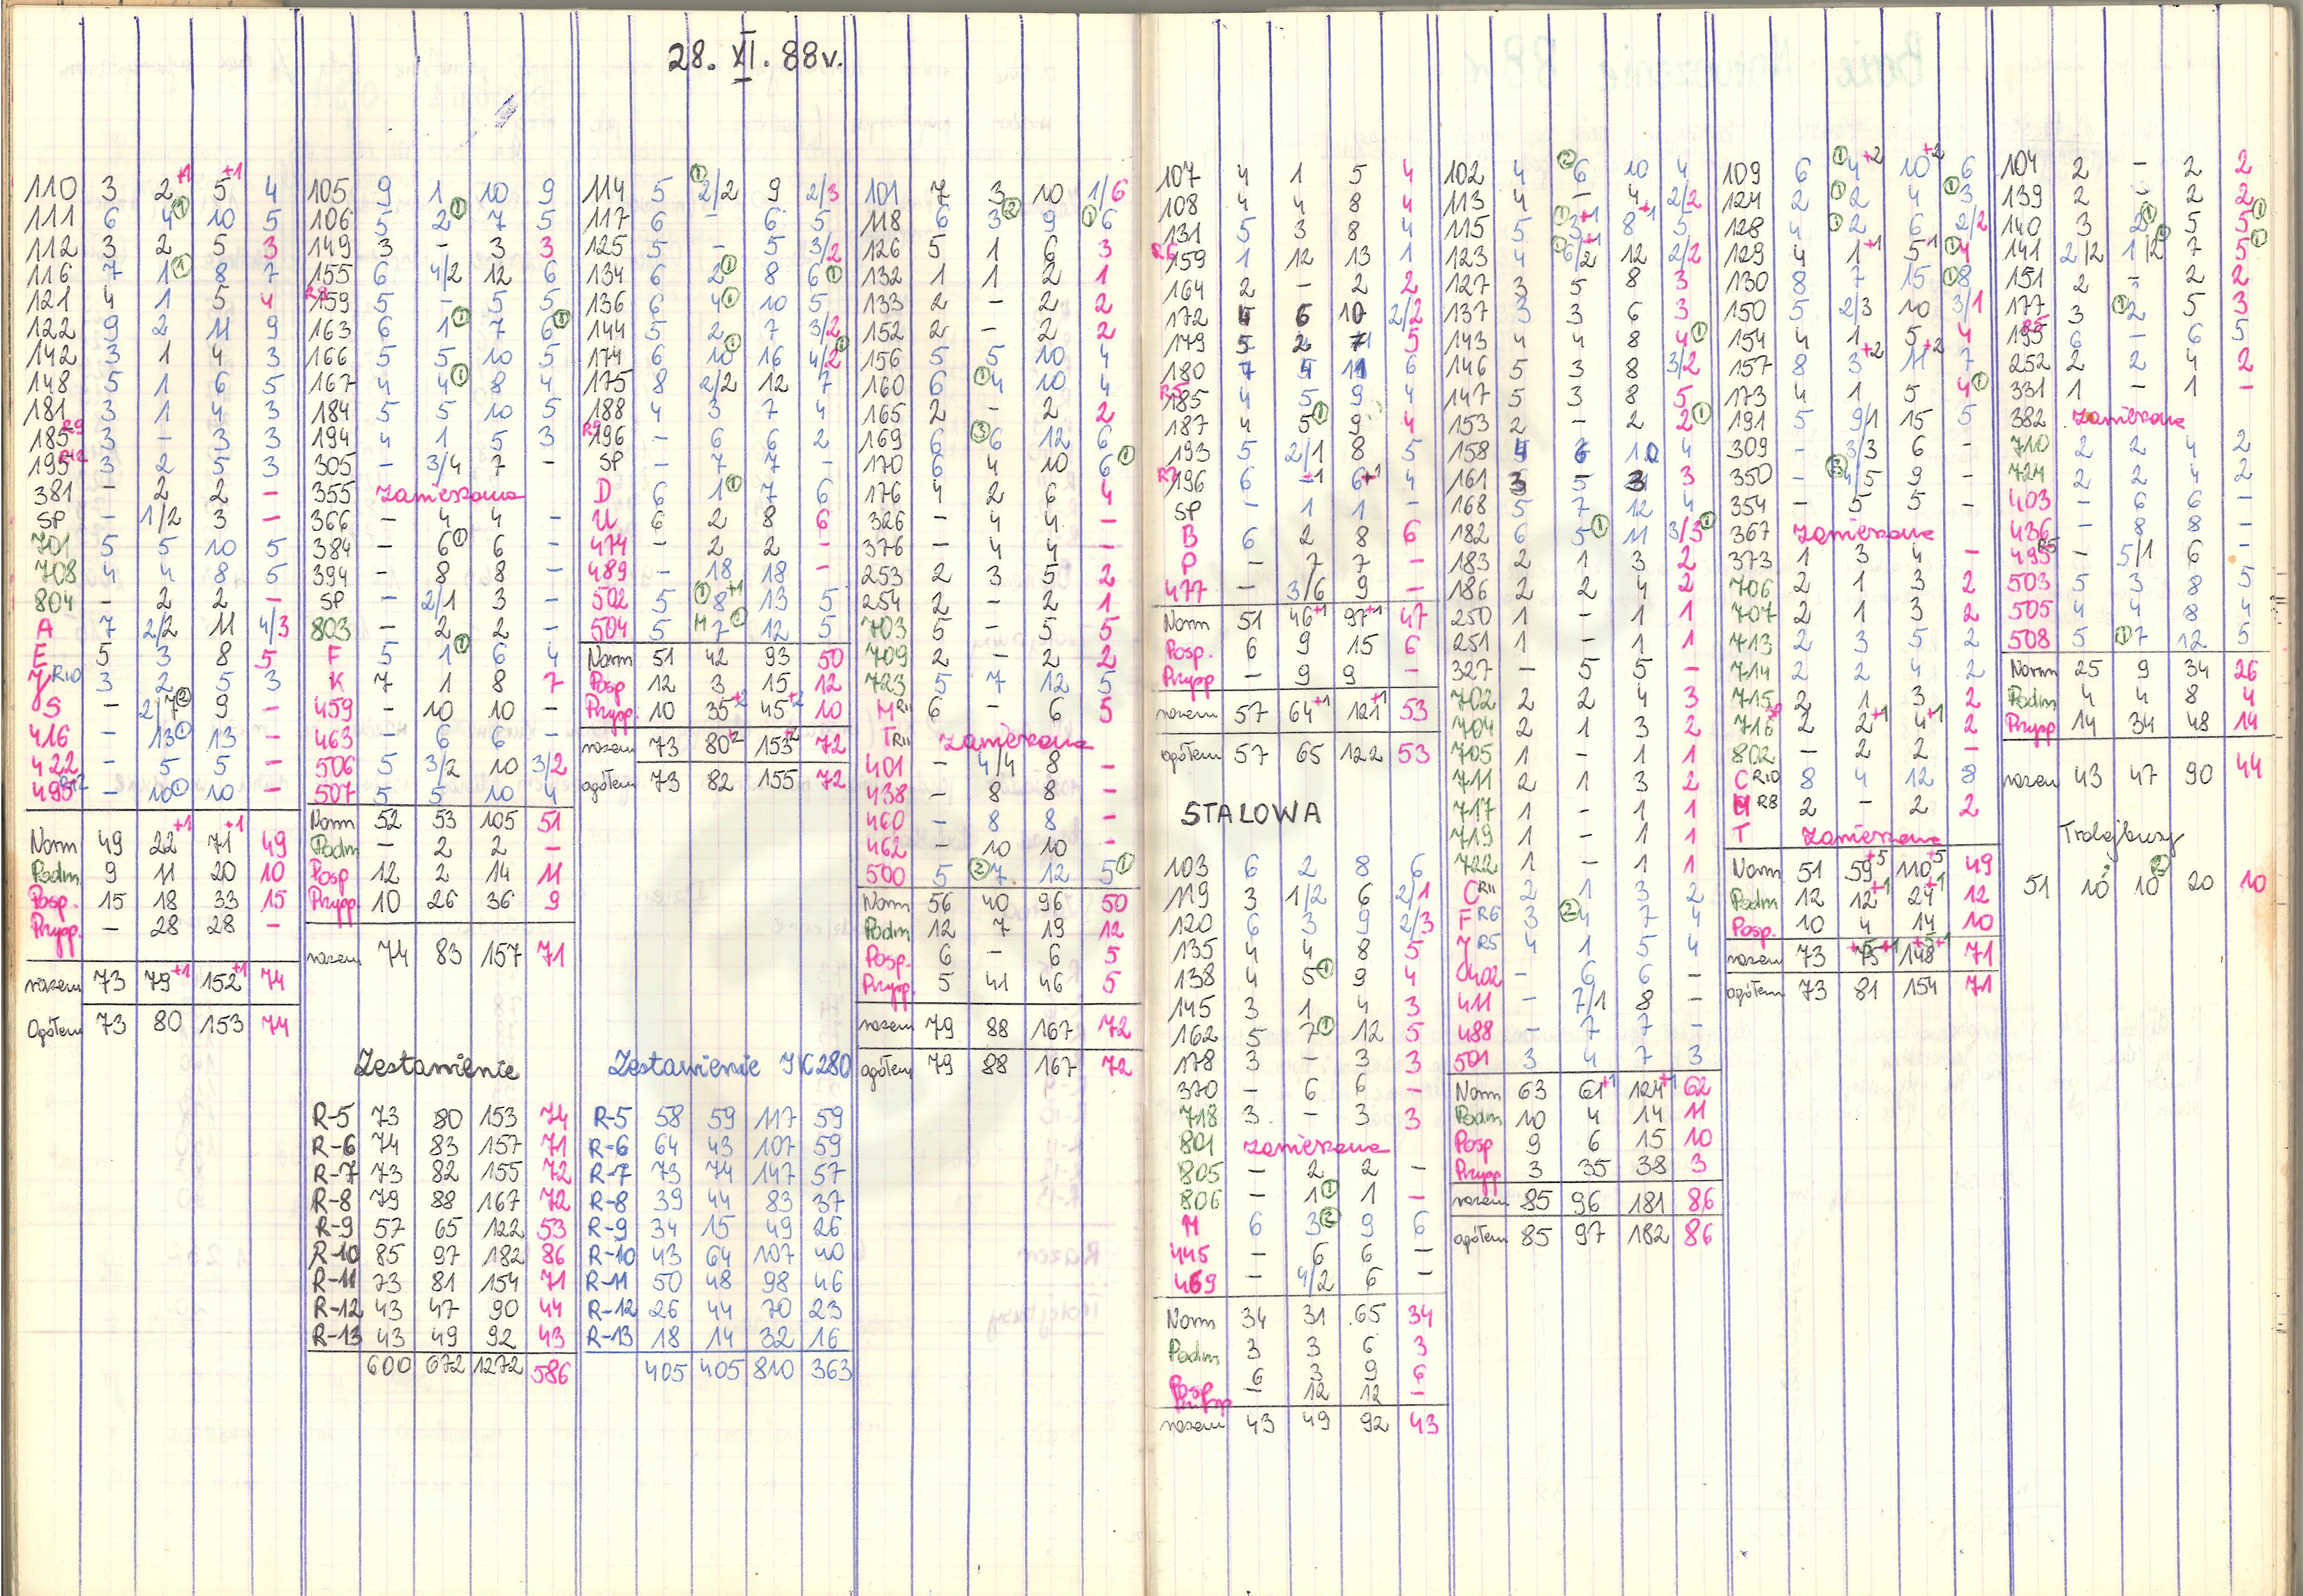 28. XI. 88r.
110 3 2+1 5+1 4
111 6 4① 10 5
112 3 2 5 3
116 7 1① 8 7
121 4 1 5 4
122 9 2 11 9
142 3 1 4 3
148 5 1 6 5
181 3 1 4 3
185 R9 3 - 3 3
195 R12 3 2 5 3
381 - 2 2 -
SP - 1/2 3 -
701 5 5 10 5
708 4 4 8 5
804 - 2 2 -
A 7 2/2 11 4/3
E 5 3 8 5
J R10 3 2 5 3
S - 2/7② 9 -
416 - 13① 13 -
422 - 5 5 -
495 R12 - 10① 10 -
Norm 49 22+1 71+1 49
Podm 9 11 20 10
Posp. 15 18 33 15
Przysp. - 28 28 -
razem 73 79+1 152+1 74
Ogółem 73 80 153 74
105 9 1 10 9
106 5 2① 7 5
149 3 - 3 3
155 6 4/2 12 6
R9 159 5 - 5 5
163 6 1① 7 6①
166 5 5 10 5
167 4 4① 8 4
184 5 5 10 5
194 4 1 5 3
305 - 3/4 7 -
355 zawieszona
366 - 4 4 -
384 - 6① 6 -
394 - 8 8 -
SP - 2/1 3 -
803 - 2 2 -
F 5 1① 6 4
K 7 1 8 7
459 - 10 10 -
463 - 6 6 -
506 5 3/2 10 3/2
507 5 5 10 4
Norm 52 53 105 51
Podm - 2 2 -
Posp 12 2 14 11
Przysp. 10 26 36 9
razem 74 83 157 71
Zestawienie
R-5 73 80 153 74
R-6 74 83 157 71
R-7 73 82 155 72
R-8 79 88 167 72
R-9 57 65 122 53
R-10 85 97 182 86
R-11 73 81 154 71
R-12 43 47 90 44
R-13 43 49 92 43
600 672 1272 586
114 5 ①2/2 9 2/3
117 6 - 6 5
125 5 - 5 3/2
134 6 2① 8 6①
136 6 4① 10 5
144 5 2 7 3/2
174 6 10① 16 4/2①
175 8 2/2 12 7
188 4 3 7 4
R9 196 - 6 6 2
SP - 7 7 -
D 6 1① 7 6
U 6 2 8 6
474 - 2 2 -
489 - 18 18 -
502 5 ①8+1 13 5
504 5 M 7① 12 5
Norm 51 42 93 50
Posp 12 3 15 12
Przysp. 10 35+2 45+2 10
razem 73 80+2 153+2 72
ogółem 73 82 155 72
Zestawienie JK280
R-5 58 59 117 59
R-6 64 43 107 59
R-7 73 74 147 57
R-8 39 44 83 37
R-9 34 15 49 26
R-10 43 64 107 40
R-11 50 48 98 46
R-12 26 44 70 23
R-13 18 14 32 16
405 405 810 363
101 7 3 10 1/6
118 6 3② 9 ①6
126 5 1 6 3
132 1 1 2 1
133 2 - 2 2
152 2 - 2 2
156 5 5 10 4
160 6 ①4 10 4
165 2 - 2 2
169 6 ③6 12 6
170 6 4 10 6①
176 4 2 6 4
326 - 4 4 -
376 - 4 4 -
253 2 3 5 2
254 2 - 2 1
703 5 - 5 5
709 2 - 2 2
723 5 7 12 5
M R11 6 - 6 5
T R11 zawieszona
401 - 4/4 8 -
438 - 8 8 -
460 - 8 8 -
462 - 10 10 -
500 5 ②7 12 5①
Norm 56 40 96 50
Podm 12 7 19 12
Posp. 6 - 6 5
Przysp. 5 41 46 5
razem 79 88 167 72
ogółem 79 88 167 72
107 4 1 5 4
108 4 4 8 4
131 5 3 8 4
R6 159 1 12 13 1
164 2 - 2 2
172 4 6 10 2/2
179 5 2 7 5
180 7 4 11 6
R5 185 4 5 9 4
187 4 5① 9 4
193 5 2/1 8 5
R7 196 6 -+1 6+1 4
SP - 1 1 -
B 6 2 8 6
P - 7 7 -
477 - 3/6 9 -
Norm 51 46+1 97+1 47
Posp. 6 9 15 6
Przysp - 9 9 -
razem 57 64+1 121+1 53
ogółem 57 65 122 53
STALOWA
103 6 2 8 6
119 3 1/2 6 2/1
120 6 3 9 2/3
135 4 4 8 5
138 4 5① 9 4
145 3 1 4 3
162 5 7① 12 5
178 3 - 3 3
370 - 6 6 -
718 3 - 3 3
801 zawieszona
805 - 2 2 -
806 - 1① 1 -
M 6 3② 9 6
445 - 6 6 -
469 - 4/2 6 -
Norm 34 31 65 34
Podm 3 3 6 3
Posp 6 3 9 6
Przysp - 12 12 -
razem 43 49 92 43
102 4 ②6 10 4
113 4 - 4 2/2
115 5 ①3+1 8+1 5
123 4 ①6/2 12 2/2
127 3 5 8 3
137 3 3 6 3
143 4 4 8 4①
146 5 3 8 3/2
147 5 3 8 5
153 2 - 2 2①
158 4 6 10 4
161 3 - 3 3
168 5 7 12 4
182 6 5① 11 3/3①
183 2 1 3 2
186 2 2 4 2
250 1 - 1 1
251 1 - 1 1
327 - 5 5 -
702 2 2 4 3
704 2 1 3 2
705 1 - 1 1
711 2 1 3 2
717 1 - 1 1
719 1 - 1 1
722 1 - 1 1
C R11 2 1 3 2
F R6 3 ②4 7 4
J R5 4 1 5 4
402 - 6 6 -
411 - 7/1 8 -
488 - 7 7 -
501 3 4 7 3
Norm 63 61+1 124+1 62
Podm 10 4 14 11
Posp 9 6 15 10
Przysp 3 35 38 3
razem 85 96 181 86
ogółem 85 97 182 86
109 6 ①4+2 10+2 6
124 2 ①2 4 ①3
128 4 ①2 6 2/2
129 4 1+1 5+1 ①4
130 8 7 15 ①8
150 5 2/3 10 3/1
154 4 1 5 4
157 8 3+2 11+2 7
173 4 1 5 4①
191 5 9/1 15 5
309 - 3/3 6 -
350 - ③4/5 9 -
354 - 5 5 -
367 zawieszona
373 1 3 4 -
706 2 1 3 2
707 2 1 3 2
713 2 3 5 2
714 2 2 4 2
715 2 1 3 2
716 2 2+1 4+1 2
802 - 2 2 -
C R10 8 4 12 8
M R8 2 - 2 2
T zawieszona
Norm 51 59+5 110+5 49
Podm 12 12+1 24+1 12
Posp. 10 4 14 10
razem 73 75+5+1 148+5+1 71
ogółem 73 81 154 71
104 2 - 2 2
139 2 - 2 2
140 3 2① 5 5①
141 2/2 1/2① 7 5①
151 2 - 2 2
177 3 ①2 5 3
R5 195 6 - 6 5
252 2 2 4 2
331 1 - 1 -
382 zawieszona
710 2 2 4 2
724 2 2 4 2
403 - 6 6 -
436 - 8 8 -
495 R5 - 5/1 6 -
503 5 3 8 5
505 4 4 8 4
508 5 ①7 12 5
Norm 25 9 34 26
Podm 4 4 8 4
Przysp 14 34 48 14
razem 43 47 90 44
Trolejbusy
51 10 10② 20 10